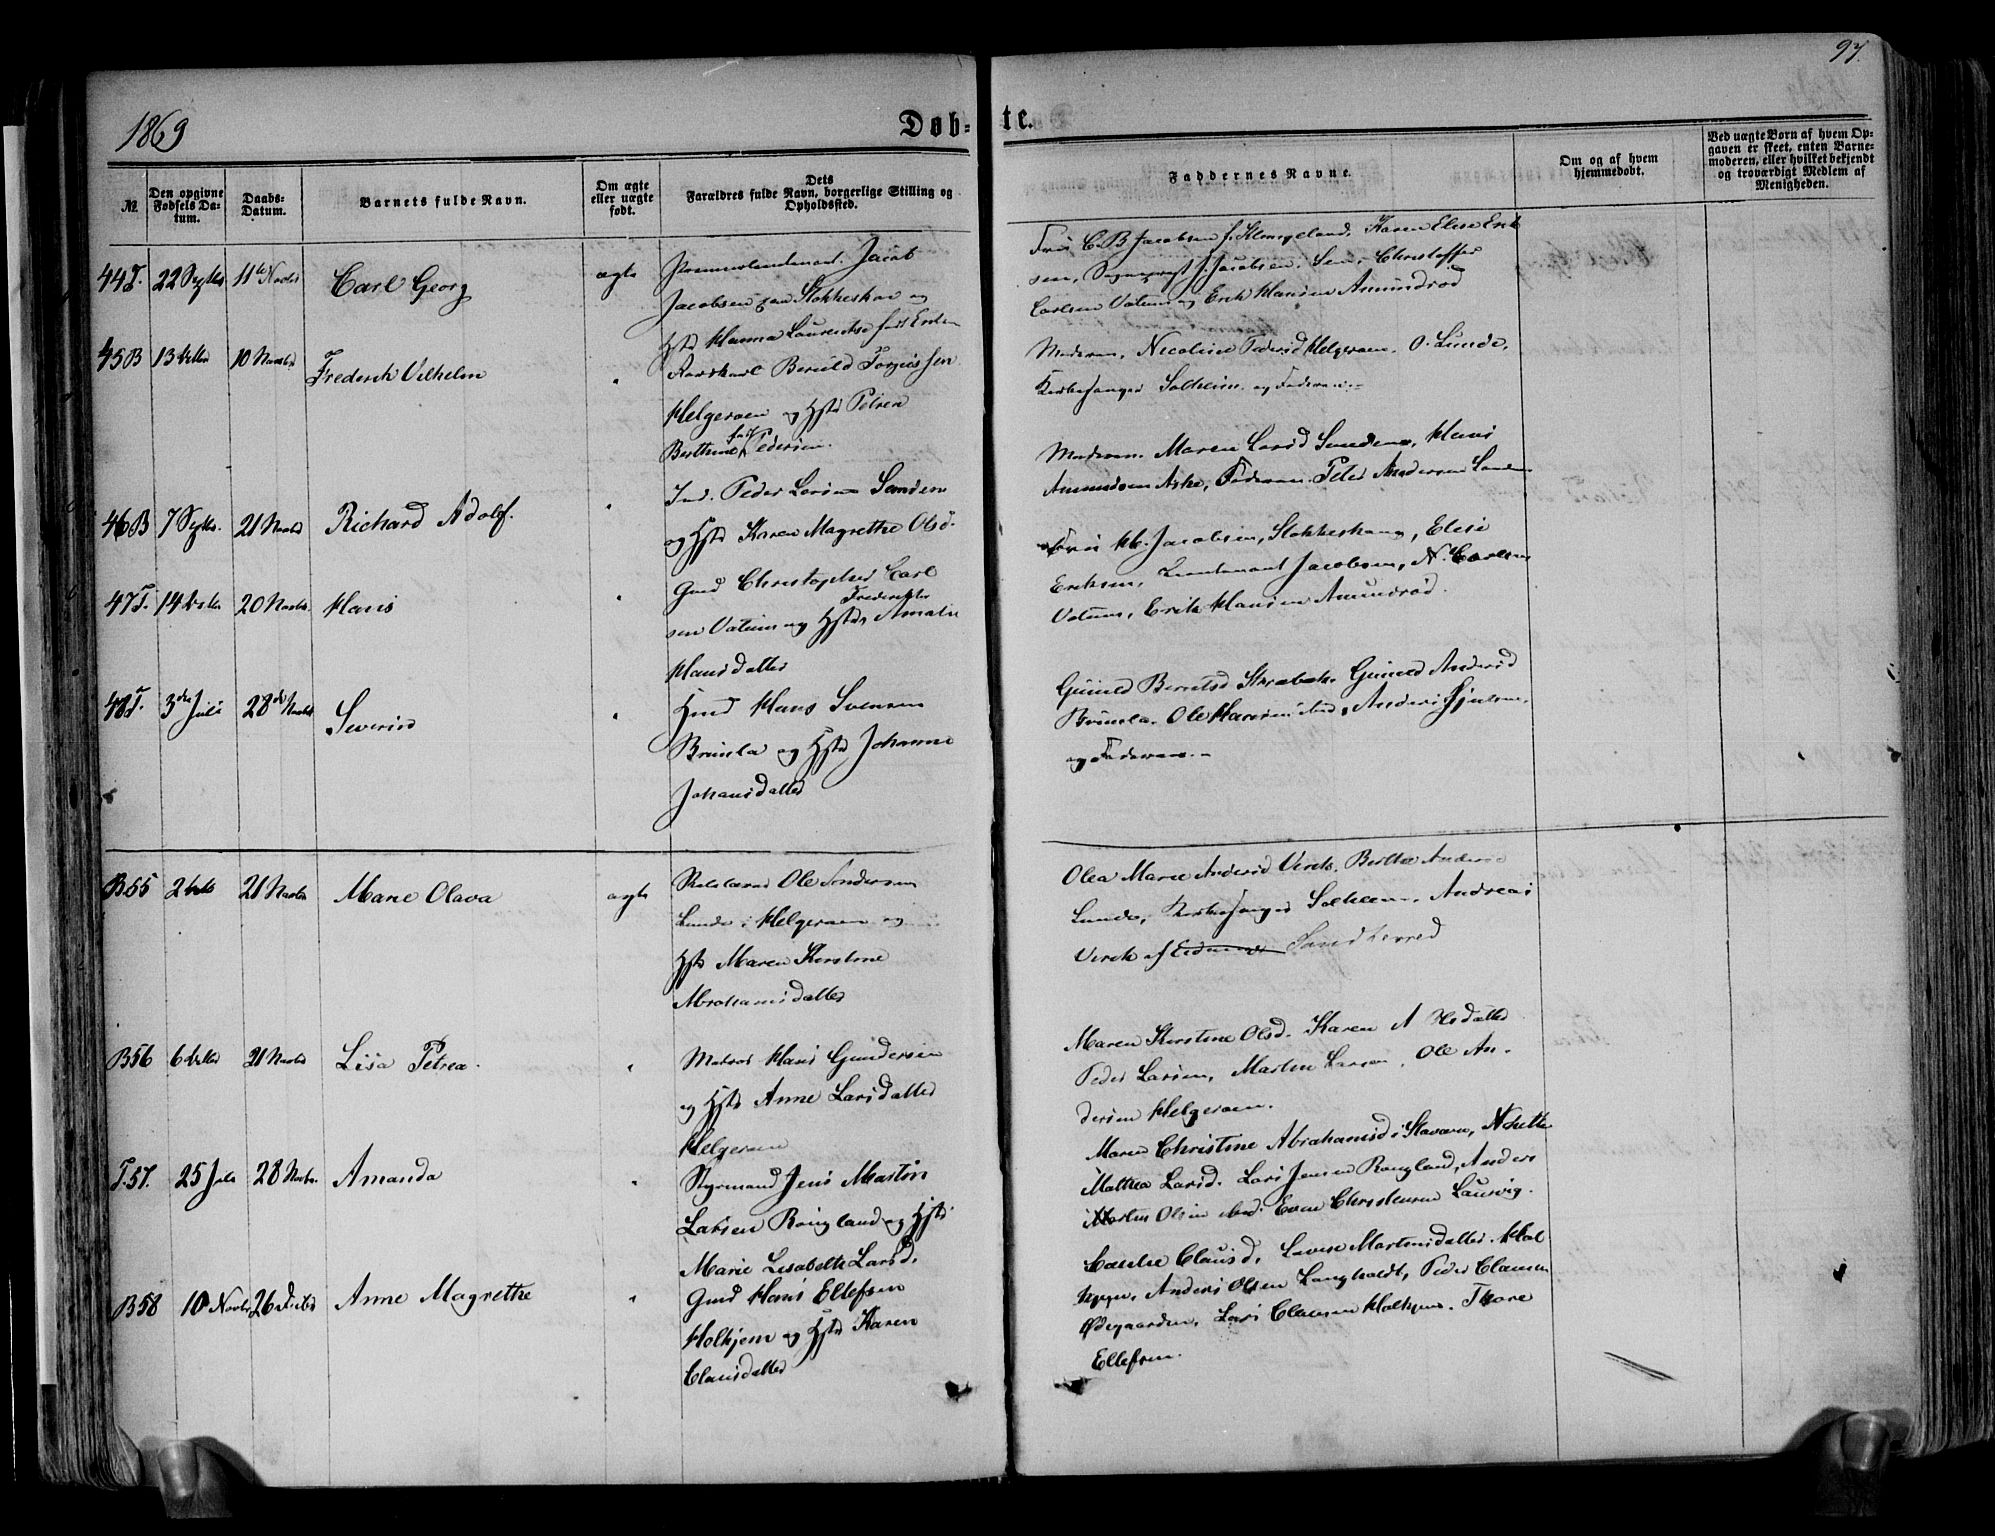 97.
1869
Døb-
te.
№
Den opgivne Fødsels Datum.
Daabs-Datum.
Barnets fulde Navn.
Om ægte eller uægte født.
Dets Forældres fulde Navn, borgerlige Stilling og Opholdssted.
Faddernes Navne.
Om og af hvem hjemmedøbt.
Ved uægte Børn af hvem Opgaven er skeet, enten Barnemoderen, eller hvilket bekjendt og troværdigt Medlem af Menigheden.
44 T. 22 Septbr 11te Novbr Carl Georg ægte
Premierlieutenant Jacob
Jacobsen paa Stokkeskov og
Hstr Hanna Laurentse født Eriksen
Fru C. B. Jacobsen f. Karen Elise Erik
sen, J. Jacobsen. Sen, Christoffer
Carlsen Vatum og Erik Hansen Amundrød
45 B 13 10 Novbr Frederik Vilhelm "
Beruld Torgiussen
Helgeroen og Hstr Petren
Berthine født Pedersen.
Moderen, Nicoline Pedersd Helgeroen. O. Lunde,
Kirkesanger Solheim og Faderen.
46 B 7 Septbr. 21 Novbr Richard Adolf. "
Ind. Peder Larsen Sanden
og Hstr Karen Magrethe Olsd.
Moderen. Maren Larsd Sanden, Hans
Amundsen Aske, Faderen. Peter Andersen Sanden
47 T. 14 20 Novbr. Hans "
Gmd Christopher Carl
sen Vatum og Hstr Amalie Frederikke
Hansdatter
Fru H. Jacobsen, Stokkeskoug, Elise
Eriksen, Lieutenant Jacobsen, N. Carlsen
Vatum, Erik Hansen Amundrød.
48 T. 3die Juli 28de Novbr Severin "
Hmd Hans Svensen
Brunla og Hstr Johanne
Johansdatter
Gunild Berntsd Gunild Andersd
Brunla. Ole Hansen ibid, Anders
og Faderen.
B 55 2 21 Novbr Marie Olava ægte
Ole Andersen
Lunde i Helgeroen og
Hstr Maren Kirstine
Abrahamsdatter
Olea Marie Andersd Virik, Berthe Andersd
Lunde, Kirkesanger Solheim, Andreas
Virik af Sandherred
B 56 6 21 Novbr Lisa Petrea. "
Matros Hans Gundersen
og Hstr Anne Larsdatter
Helgeroen
Maren Kirstine Olsd. Karen A Olsdatter
Peder Larsen, Martin Larsen, Ole An-
dersen Helgeroen.
T. 57. 25 Juli 28 Novbr. Amanda "
Styrmand Jens Martin
Larsen Rongland og Hstr
Marie Lisabeth Larsd.
Maren Christine Abrahamsd i Stavern,
Mathea Larsd. Lars Jensen Rongland, Anders
Olsen ibid. Even Christensen Laurvig.
B 58 10 Novbr 26 Anne Magrethe "
Gmd Hans Ellefsen
Holkjem og Hstr Karen
Clausdatter
Clausd, Lovise Martinsdatter Hol
Anders Olsen Langholdt, Peder Clausen
Ødegaarden, Lars Clausen Holkjem. Thore
Ellefsen.